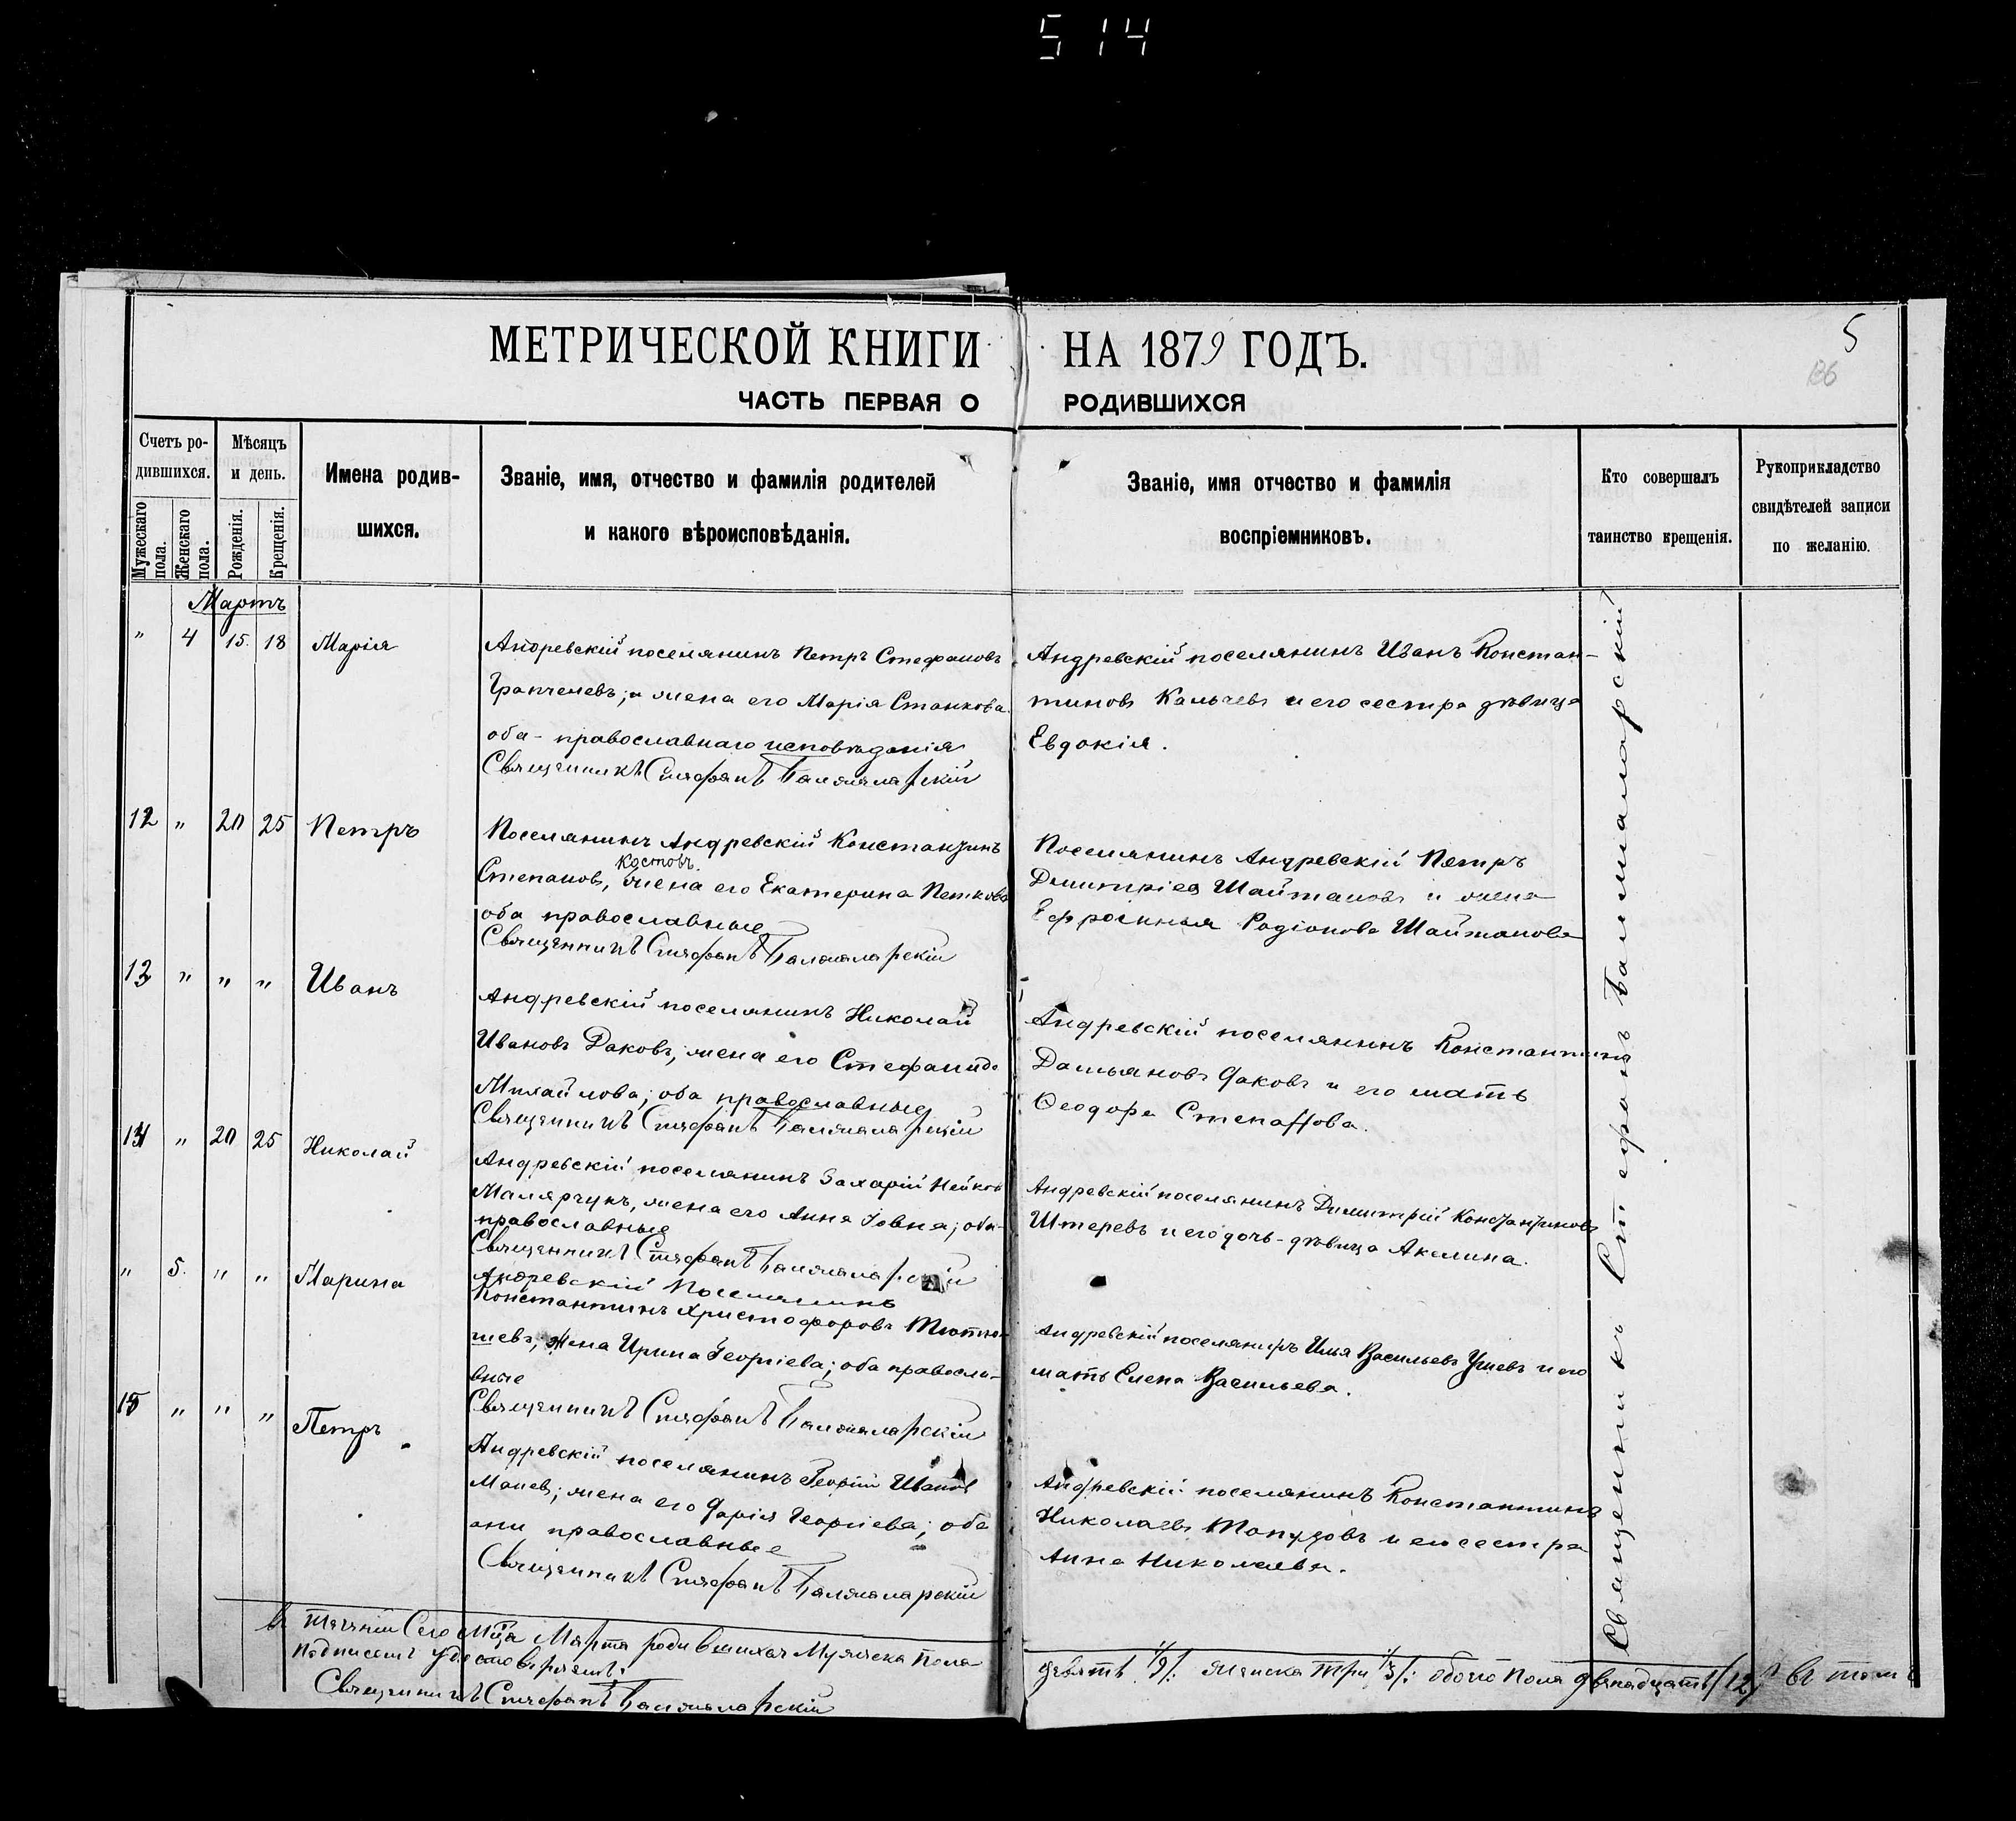 514
МЕТРИЧЕСКОЙ КНИГИ НА 1879 ГОДЪ.
5
136
ЧАСТЬ ПЕРВАЯ О РОДИВШИХСЯ
Счетъ ро-
дившихся.
Мужескаго пола.
Женскаго пола.
Мѣсяцъ
и день.
Рожденія.
Крещенія.
Имена родив-
шихся.
Званіе, имя, отчество и фамилія родителей
и какого вѣроисповѣданія.
Званіе, имя отчество и фамилія
воспріемниковъ.
Кто совершалъ
таинство крещенія.
Рукоприкладство
свидѣтелей записи
по желанію.
Мартъ
" 4 15 18 Марія
Андревскій поселянинъ Петръ Стефановъ
жена его Марія Станкова
оба - православнаго исповѣданія
Священникъ Стефанъ
Андревскій поселянинъ Иванъ Констан-
тиновъ Кальчевъ и его сестра дѣвица
Евдокія.
12 " 20 25 Петръ
Поселянинъ Андревскій Константинъ
Костовъ
Степановъ, жена его Екатерина Петкова
оба православные
Священникъ Стефанъ
Поселянинъ Андревскій Петръ
Дмитріев Шайтановъ и жена
Ефросинья Родіонова Шайтанова
13 " " " Иванъ
Андревскій поселянинъ Николай
Ивановъ Даковъ, жена его Стефанида
Михайлова; оба православные
Священникъ Стефанъ
Андревскій поселянинъ Константинъ
Дамьяновъ Даковъ и его мать
Ѳеодора
14 " 20 25 Николай
Андревскій поселянинъ Захарій
жена его Анна Іовна; оба
православные
Священникъ Стефанъ
Андревскій поселянинъ Димитрій Константиновъ
Штеревъ и его дочь - дѣвица Акелина.
" 5. " " Марина
Андревскій Поселянинъ
Константинъ Христофоровъ
жена Ирина Георгіева; оба правосла-
вные
Священникъ Стефанъ
Андревскій поселянинъ Илья Васильевъ и его
мать Елена Васильева.
15 " " " Петръ
Андревскій поселянинъ Георгій Иванов
жена его Дарія Георгіева; оба
они православные
Священникъ Стефанъ
Андревскій поселянинъ Константинъ
Николаевъ Топузовъ и его сестра
Анна Николаева.
Священникъ Стефанъ
въ теченіи сего Мца Марта родившихся Мужеска пола
девять /9/: женска три /3/: обоего пола двенадцать /12/ въ томъ
подписомъ удостовѣряемъ:
Священникъ Стефанъ